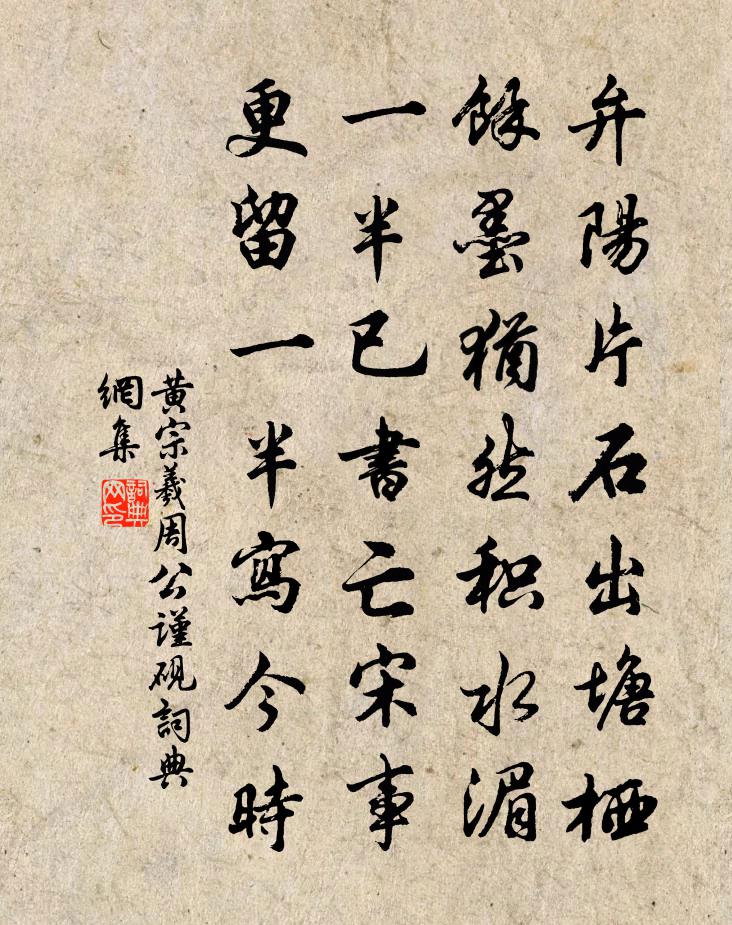 弁陽片石出塘栖
餘墨猶然积水湄
一半已書亡宋事
更留一半寫今時
黄宗羲周公謹硯詞典
網集
詞典
网印